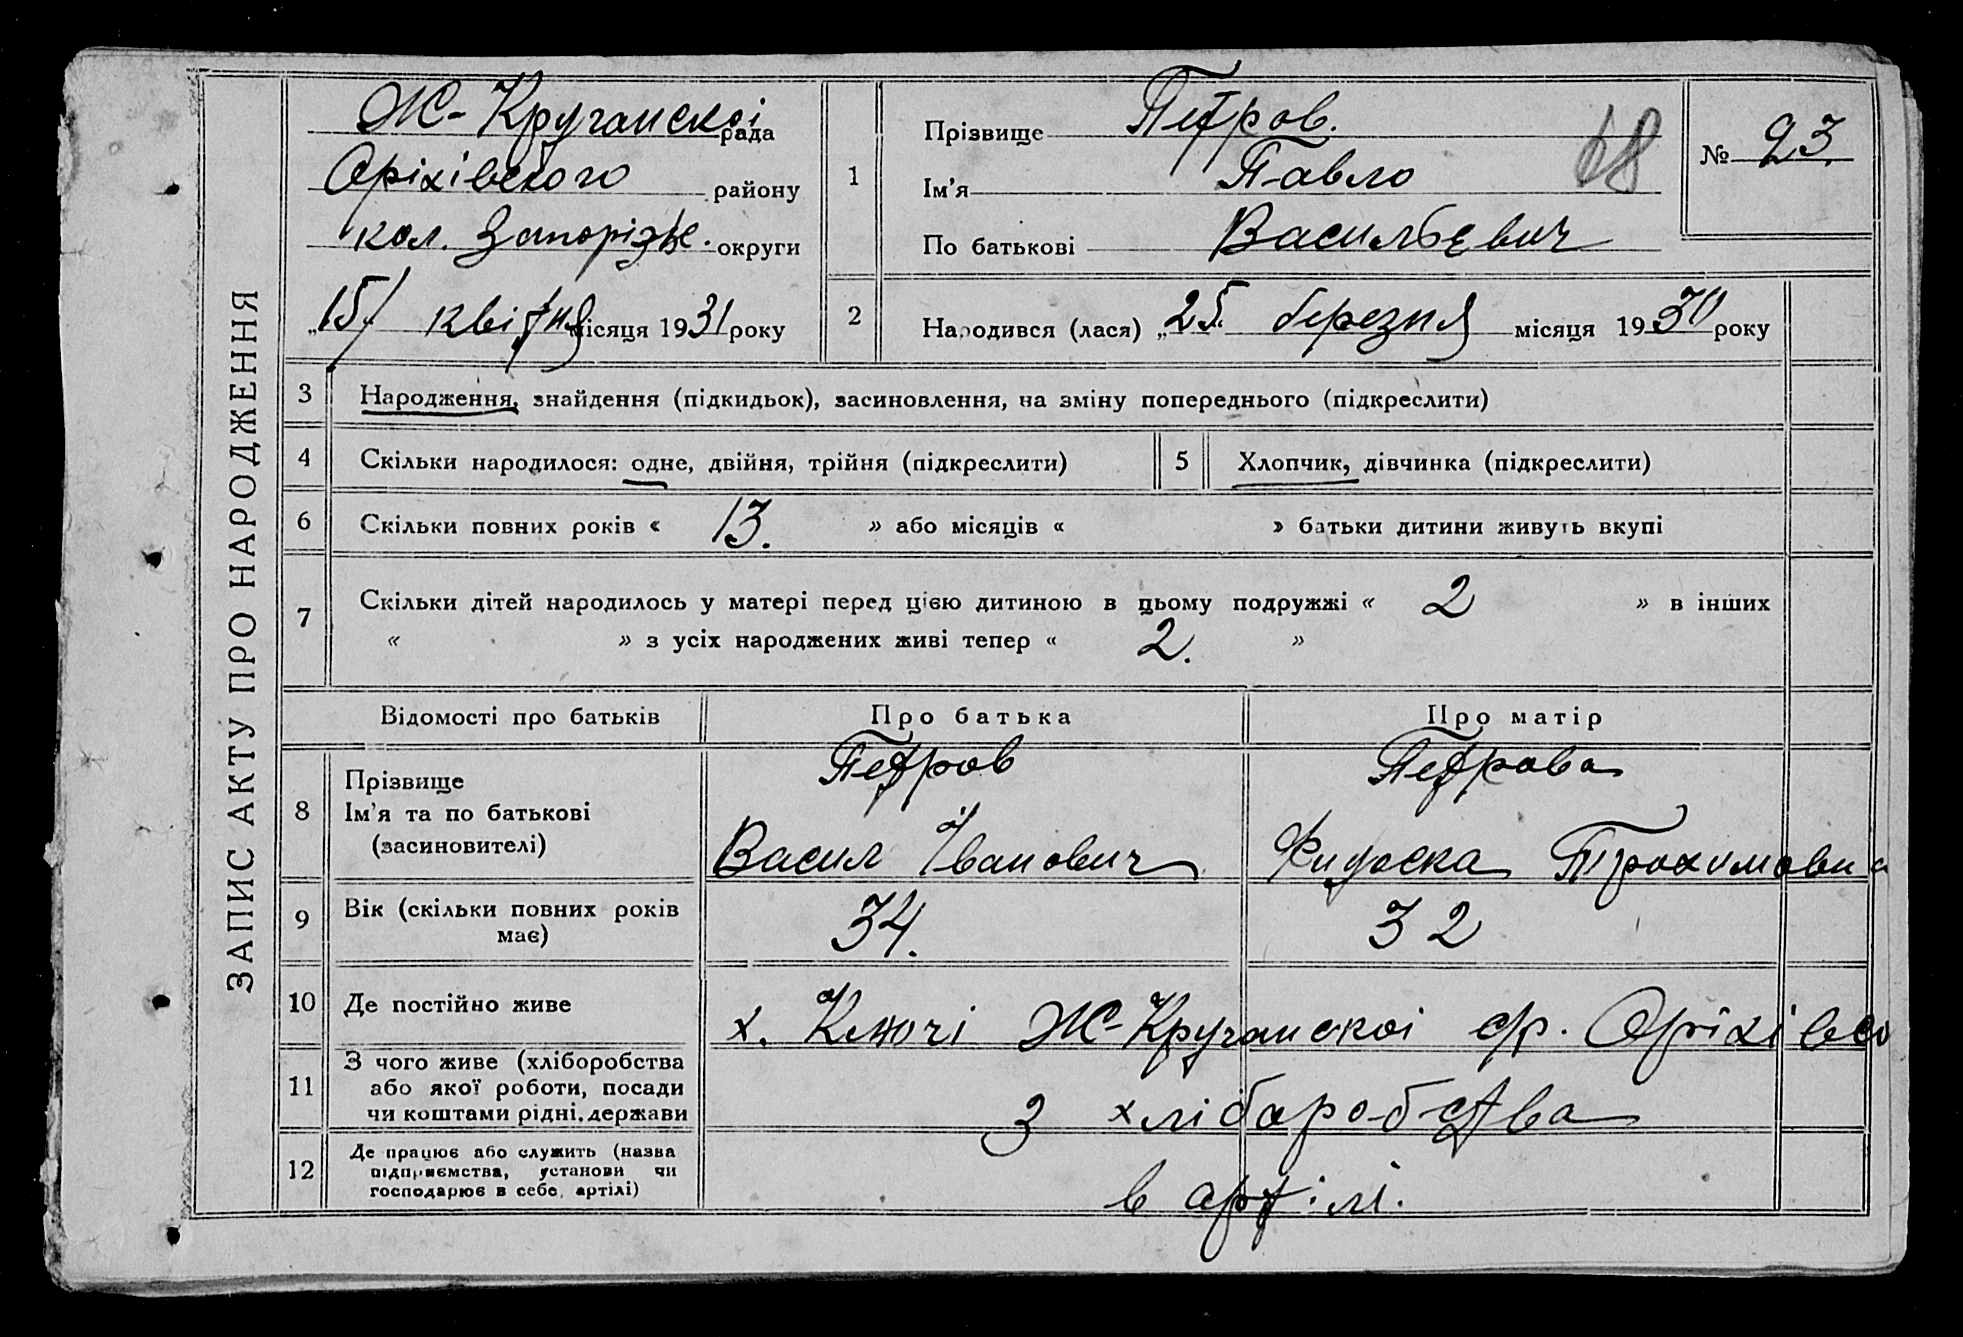 ЗАПИС АКТУ ПРО НАРОДЖЕННЯ
Ж-Кручанскоі рада
Оріхівського району
кол. Запоріжж. округи
„15/ квітня місяця 1931 року
1
Прізвище Петров.
Ім'я Павло
По батькові Васильєвич
68
№ 23.
2
Народився (лася) „25" березня місяця 1930 року
3 Народження, знайдення (підкидьок), засиновлення, на зміну попереднього (підкреслити)
4 Скільки народилося: одне, двійня, трійня (підкреслити) 5 Хлопчик, дівчинка (підкреслити)
6 Скільки повних років « 13. » або місяців « » батьки дитини живуть вкупі
7 Скільки дітей народилось у матері перед цією дитиною в цьому подружжі « 2 » в інших
« » з усіх народжених живі тепер « 2. »
Відомості про батьків Про батька Про матір
8 Прізвище
Ім'я та по батькові
(засиновителі)
Петров
Васил Іванович
Петрова
Трохимовна
9 Вік (скільки повних років
має)
34. 32
10 Де постійно живе х. Ключі Ж-Кручанскоі с/р. Оріхівсо
11 З чого живе (хліборобства
або якої роботи, посади
чи коштами рідні, держави
З хліборобства
12 Де працює або служить (назва
підприємства, установи чи
господарює в себе, артілі)
в артілі.